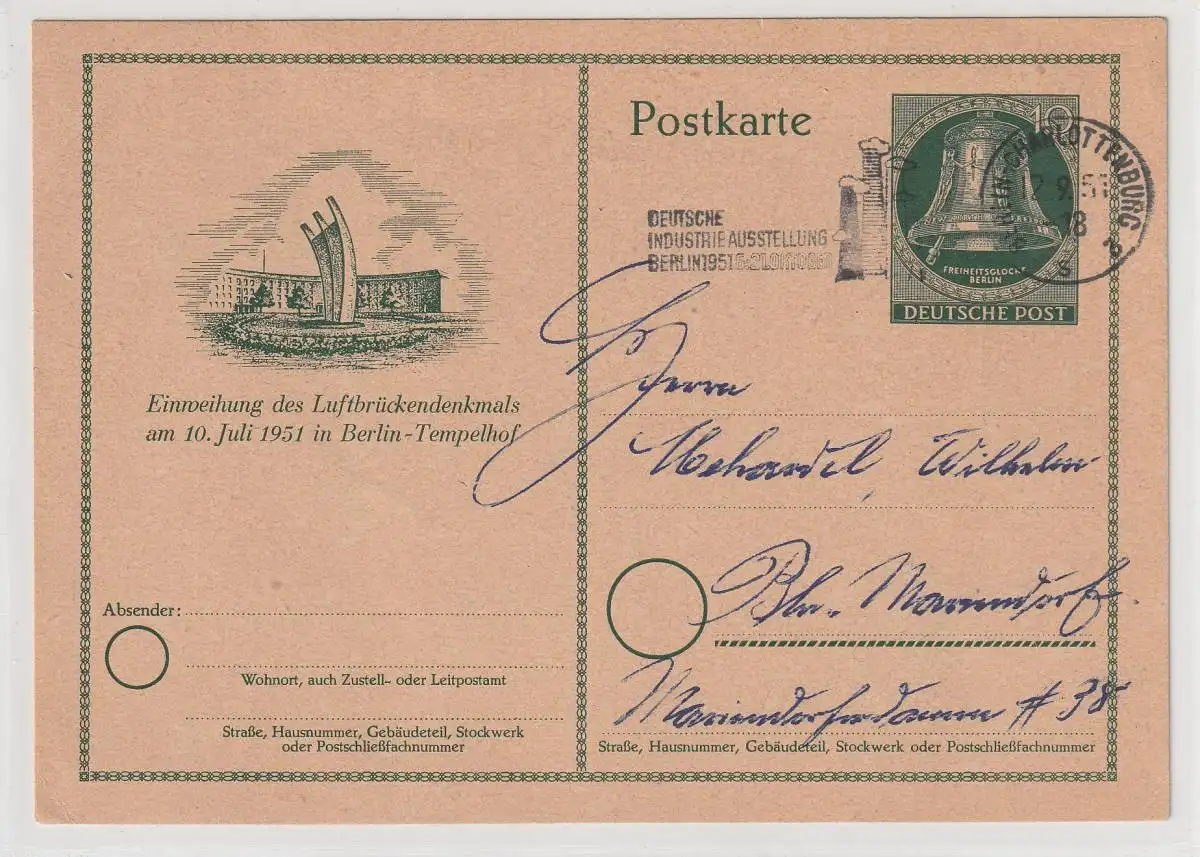 Postkarte
10
FREIHEITSGLOCKE
BERLIN
DEUTSCHE POST
CHARLOTTENBURG
9.51
18
s
DEUTSCHE
INDUSTRIEAUSSTELLUNG
BERLIN 1951
Einweihung des Luftbrückendenkmals
am 10. Juli 1951 in Berlin-Tempelhof
Herrn
Wilhelm
Bln. Mariendorf.
Mariendorferdamm # 38
Absender:
Wohnort, auch Zustell- oder Leitpostamt
Straße, Hausnummer, Gebäudeteil, Stockwerk
oder Postschließfachnummer
Straße, Hausnummer, Gebäudeteil, Stockwerk oder Postschließfachnummer